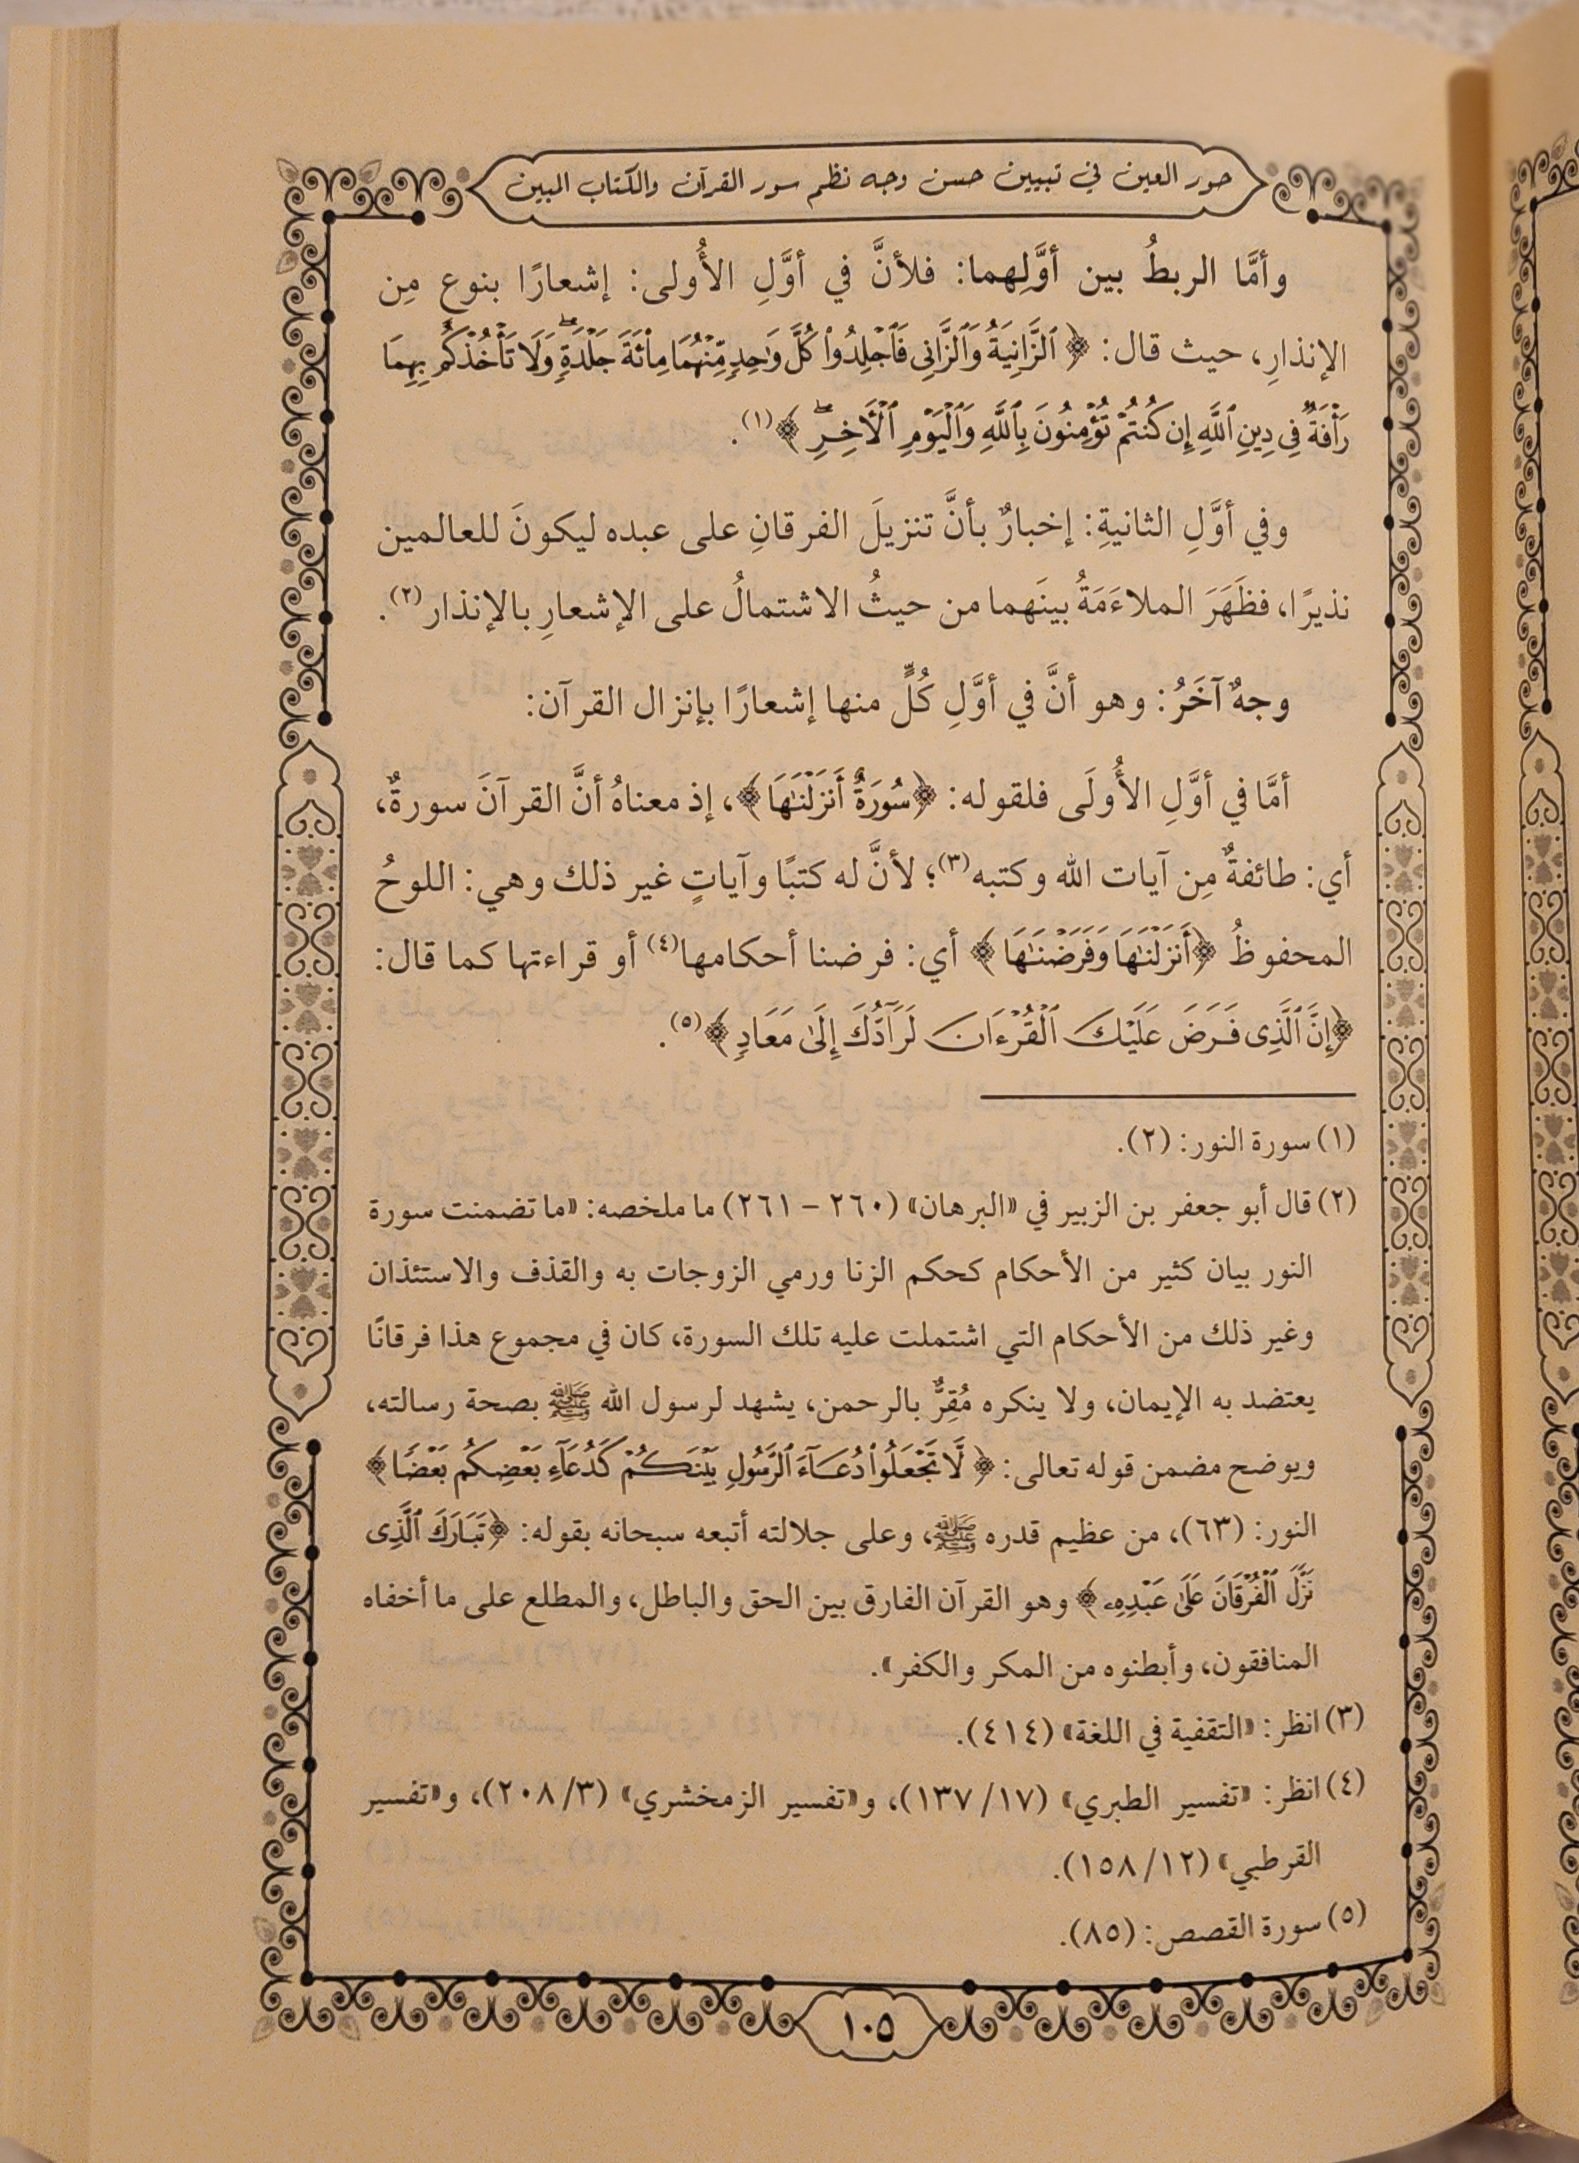 حور العين في تبيين حسن وجه نظم سور القرآن والكتاب المبين
وأمَّا الربطُ بين أوَّلِهما: فلأنَّ في أوَّلِ الأُولى: إشعارًا بنوعٍ مِن
الإنذارِ، حيث قال: ﴿ٱلزَّانِيَةُ وَٱلزَّانِى فَٱجْلِدُوا۟ كُلَّ وَٰحِدٍ مِّنْهُمَا مِا۟ئَةَ جَلْدَةٍ ۖ وَلَا تَأْخُذْكُم بِهِمَا
رَأْفَةٌ فِى دِينِ ٱللَّهِ إِن كُنتُمْ تُؤْمِنُونَ بِٱللَّهِ وَٱلْيَوْمِ ٱلْـَٔاخِرِ ۖ﴾(١).
وفي أوَّلِ الثانيةِ: إخبارٌ بأنَّ تنزيلَ الفرقانِ على عبده ليكونَ للعالمين
نذيرًا، فظَهَرَ الملاءَمَةُ بينَهما من حيثُ الاشتمالُ على الإشعارِ بالإنذار(٢).
وجهٌ آخَرُ: وهو أنَّ في أوَّلِ كُلٍّ منها إشعارًا بإنزال القرآن:
أمَّا في أوَّلِ الأُولَى فلقوله: ﴿سُورَةٌ أَنزَلْنَٰهَا﴾، إذ معناهُ أنَّ القرآنَ سورةٌ،
أي: طائفةٌ مِن آيات الله وكتبه(٣)؛ لأنَّ له كتبًا وآياتٍ غير ذلك وهي: اللوحُ
المحفوظُ ﴿أَنزَلْنَٰهَا وَفَرَضْنَٰهَا﴾ أي: فرضنا أحكامها(٤) أو قراءتها كما قال:
﴿إِنَّ ٱلَّذِى فَرَضَ عَلَيْكَ ٱلْقُرْءَانَ لَرَآدُّكَ إِلَىٰ مَعَادٍ﴾(٥).
(١) سورة النور: (٢).
(٢) قال أبو جعفر بن الزبير في «البرهان» (٢٦٠ - ٢٦١) ما ملخصه: «ما تضمنت سورة
النور بيان كثير من الأحكام كحكم الزنا ورمي الزوجات به والقذف والاستئذان
وغير ذلك من الأحكام التي اشتملت عليه تلك السورة، كان في مجموع هذا فرقانًا
يعتضد به الإيمان، ولا ينكره مُقِرٌّ بالرحمن، يشهد لرسول الله ﷺ بصحة رسالته،
ويوضح مضمن قوله تعالى: ﴿لَّا تَجْعَلُوا۟ دُعَآءَ ٱلرَّسُولِ بَيْنَكُمْ كَدُعَآءِ بَعْضِكُم بَعْضًا﴾
النور: (٦٣)، من عظيم قدره ﷺ، وعلى جلالته أتبعه سبحانه بقوله: ﴿تَبَارَكَ ٱلَّذِى
نَزَّلَ ٱلْفُرْقَانَ عَلَىٰ عَبْدِهِۦ﴾ وهو القرآن الفارق بين الحق والباطل، والمطلع على ما أخفاه
المنافقون، وأبطنوه من المكر والكفر».
(٣) انظر: «التقفية في اللغة» (٤١٤).
(٤) انظر: «تفسير الطبري» (١٧/ ١٣٧)، و«تفسير الزمخشري» (٣/ ٢٠٨)، و«تفسير
القرطبي» (١٢/ ١٥٨).
(٥) سورة القصص: (٨٥).
١٠٥